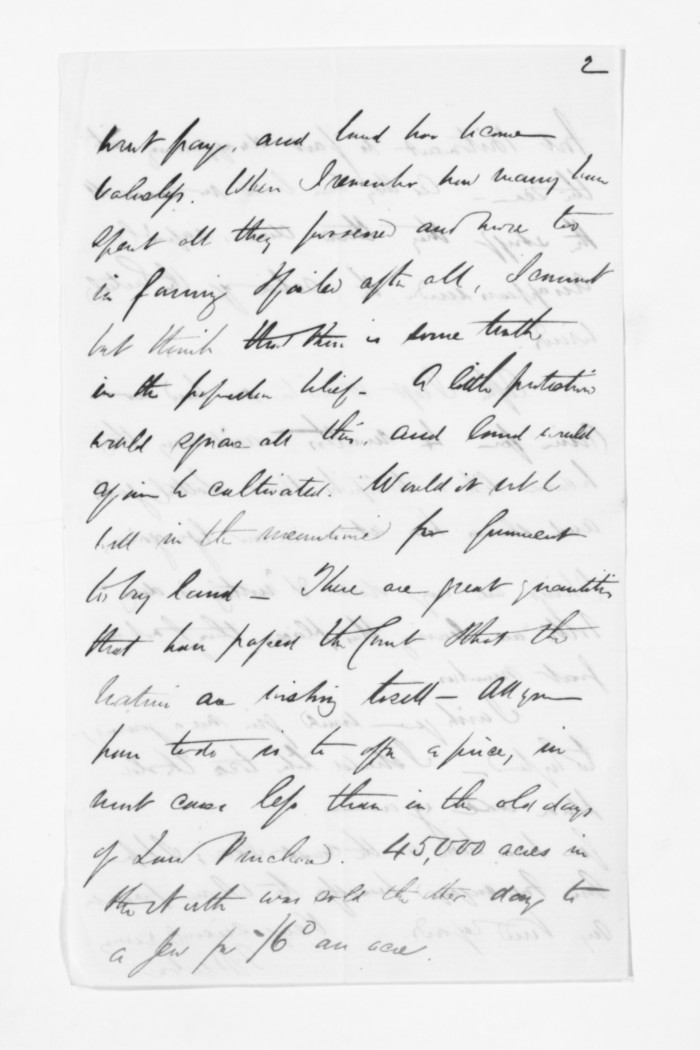 2
wont pay, and land has become
valueless. When I remember how many have
spent all they possessed and more too
in farming & failed after all, I cannot
but think that there is some truth
in the popular belief - A little protection
would square all this, and land would
again be cultivated. Would it not be
well in the meantime for Government
to buy land - There are great quantities
that have passed the Court & that the
natives are wishing to sell - All you
have to do is to offer a price, in
most cases less than in the old days
of Land Purchase. 45,000 acres in
the North was sold the other day to
a Jew for -/6d an acre.